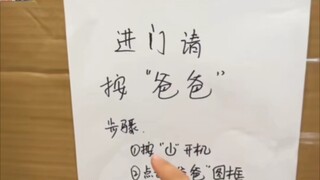 进门请
按“爸爸”
步骤.
①按“⏻”开机
②点 爸"图框